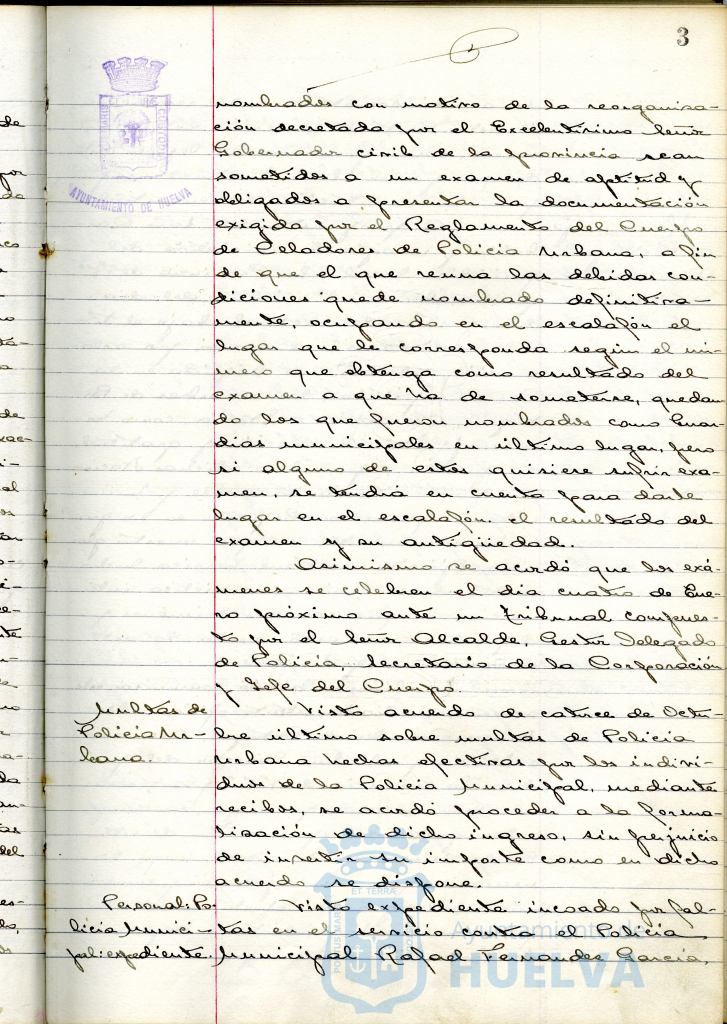 3
AYUNTAMIENTO DE HUELVA
nombrados con motivo de la reorganiza-
ción decretada por el Excelentísimo Señor
Gobernador civil de la provincia sean
sometidos a un examen de aptitud y
obligados a presentar la documentación
exigida por el Reglamento del Cuerpo
de Celadores de Policía Urbana, a fin
de que el que reuna las debidas con-
diciones quede nombrado definitiva-
mente, ocupando en el escalafón el
lugar que le corresponda según el nú-
mero que obtenga como resultado del
examen a que ha de someterse, quedan-
do los que fueron nombrados como Guar-
dias municipales en último lugar, pero
si alguno de estos quisiere sufrir exa-
men, se tendrá en cuenta para darle
lugar en el escalafón, el resultado del
examen y su antigüedad.
Asimismo se acordó que los exá-
menes se celebren el día cuatro de Ene-
ro próximo ante un Tribunal compues-
to por el Señor Alcalde, Gestor Delegado
de Policía, Secretario de la Corporación
y Jefe del Cuerpo.
Multas de
Policía Ur-
bana.
Visto acuerdo de catorce de Octu-
bre último sobre multas de Policía
Urbana hechas efectivas por los indivi-
duos de la Policía Municipal, mediante
recibos, se acordó proceder a la forma-
lización de dicho ingreso, sin perjuicio
de invertir su importe como en dicho
acuerdo se dispone.
Personal: Po-
licía Munici-
pal: expediente.
Visto expediente incoado por fal-
tas en el servicio contra el Policía
Municipal Rafael Fernandez García,
Ayuntamiento de
HUELVA